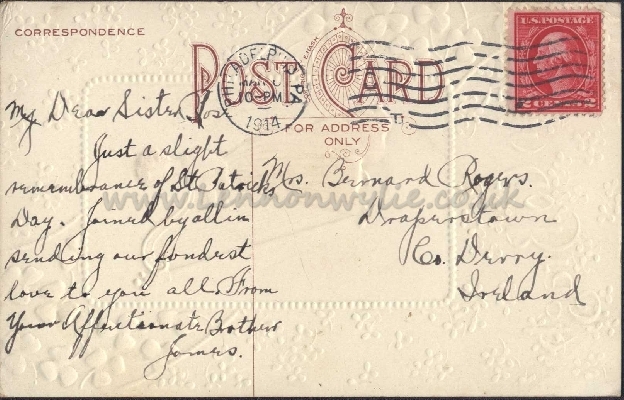 CORRESPONDENCE
POST CARD
FOR ADDRESS
ONLY
U.S. POSTAGE
2 CENTS 2
PHILADELPHIA PA
MAR
PM
1914
My Dear Sister Rose
Just a slight
remembrance of St Patricks
Day. Joined by all in
sending our fondest
love to you all From
Your Affectionate Brother
James.
Mrs. Bernard Rogers.
Draperstown
Co. Derry.
Ireland
www.lennonwylie.co.uk